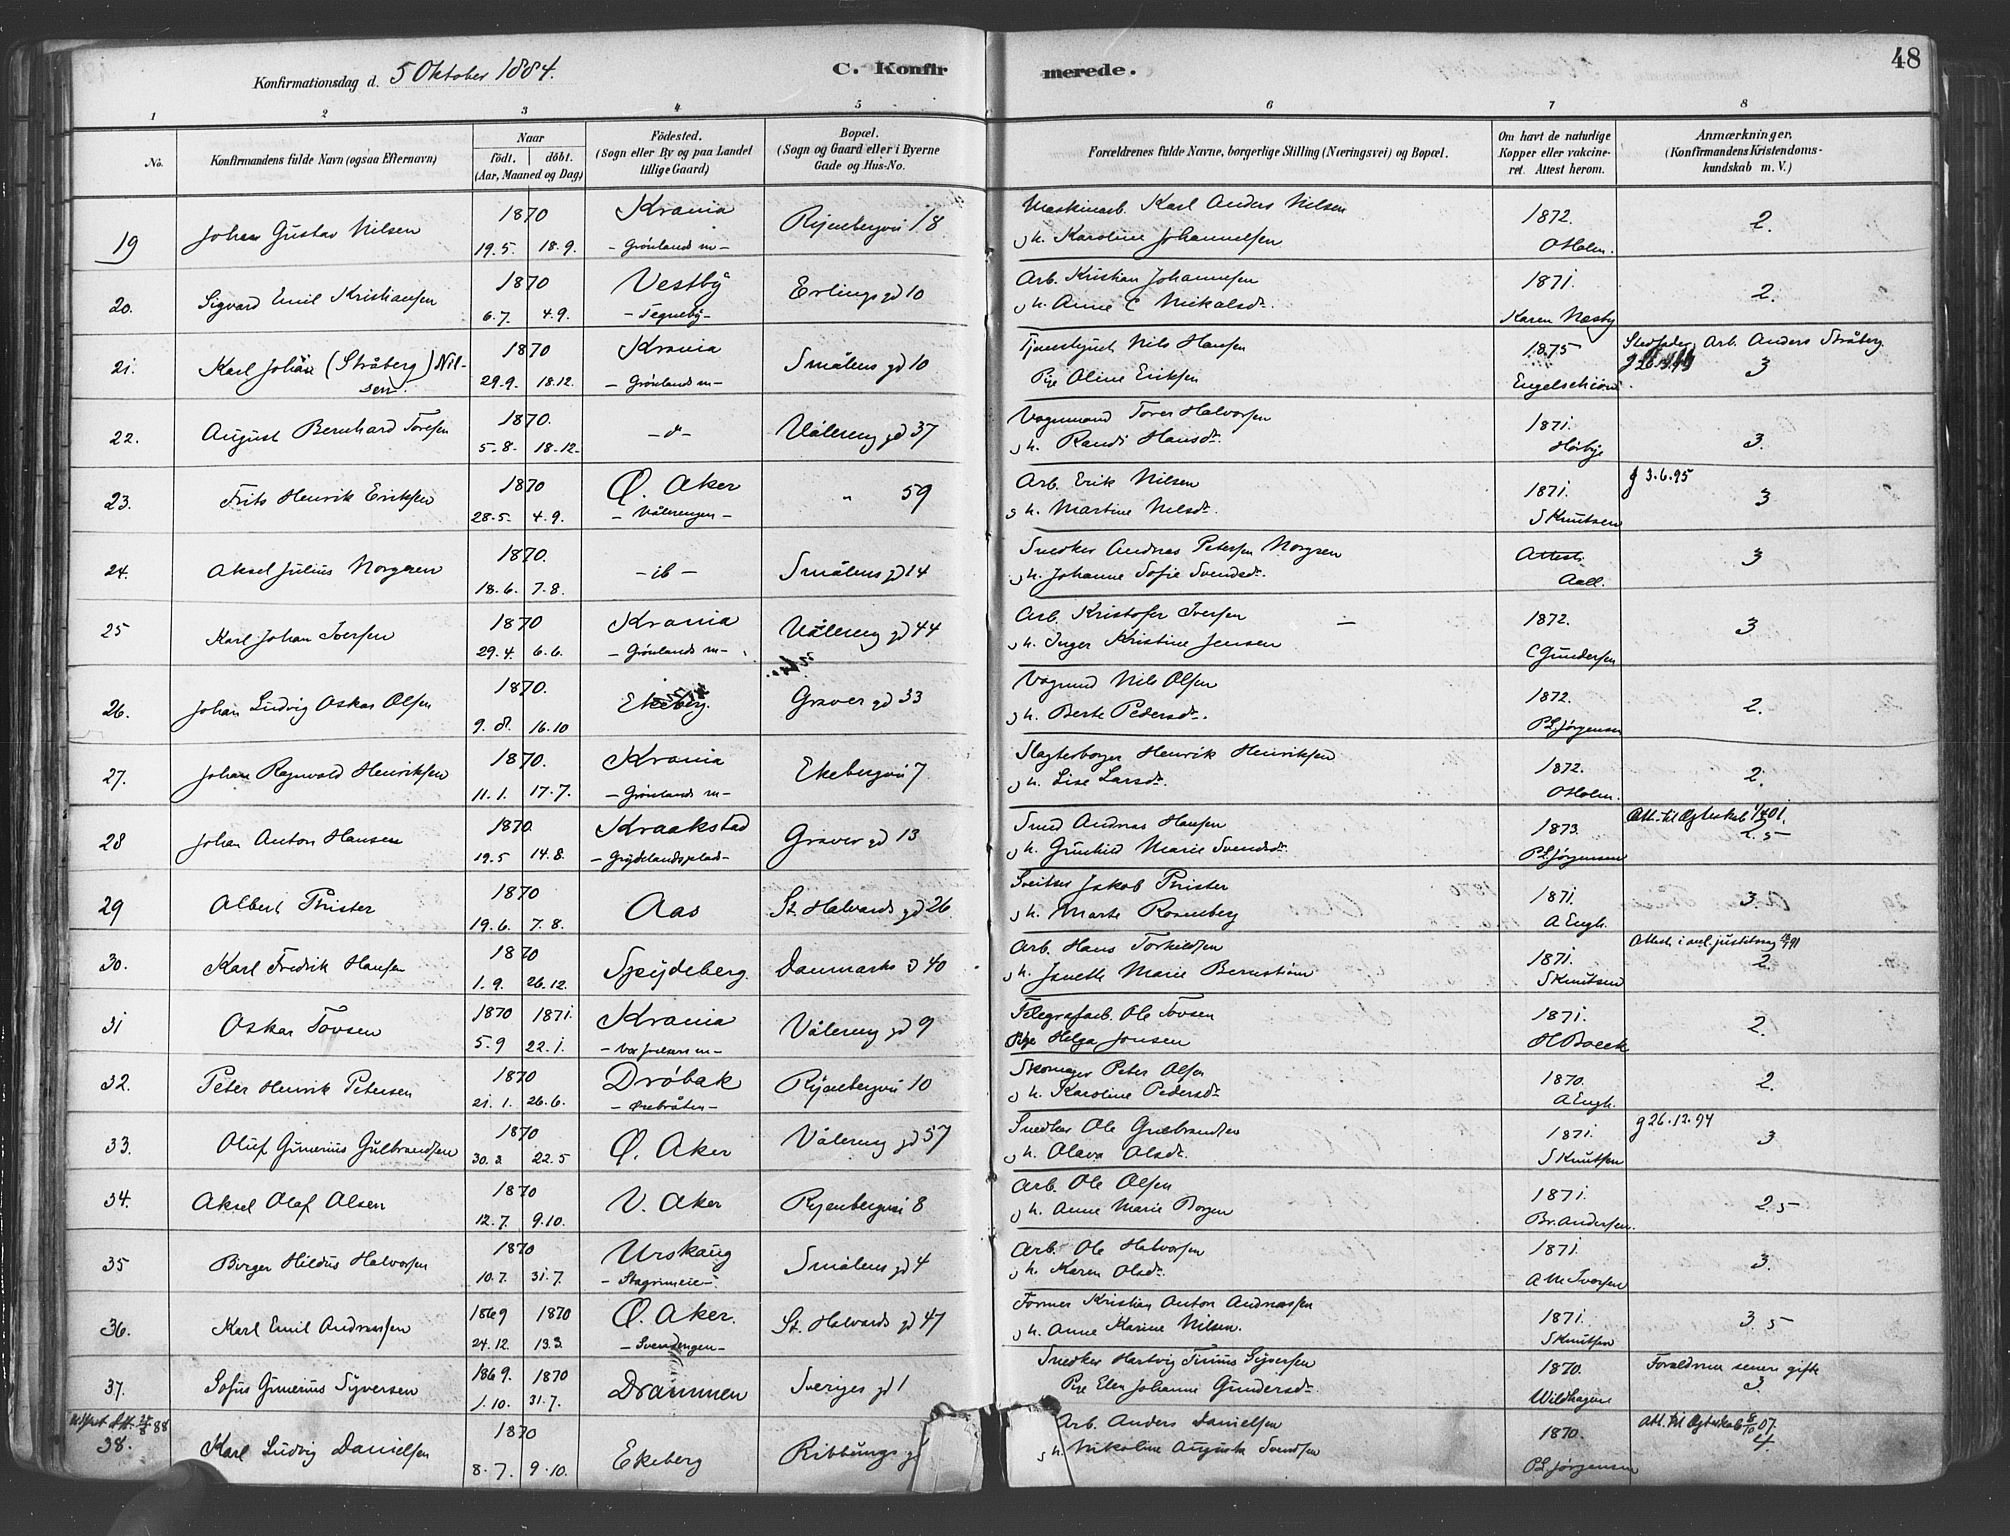 48
Konfirmationsdag d. 5 Oktober 1884.
C. Konfirmerede.
1 2 3 4 5 6 7 8
No. Konfirmandens fulde Navn (ogsaa Efternavn) Naar födt. döbt. (Aar, Maaned og Dag) Födested. (Sogn eller By og paa Landet tillige Gaard) Bopæl. (Sogn og Gaard eller i Byerne Gade og Hus-No. Forældrenes fulde Navne, borgerlige Stilling (Næringsvei) og Bopæl. Om havt de naturlige Kopper eller vakcineret. Attest herom. Anmærkninger. (Konfirmandens Kristendomskundskab m. V.)
19 Johan Gustav Nilsen 1870 19.5. 18.9. Krania - Grönlands m - Ryenbergvei 18 Maskinarb. Karl Anders Nilsen
o h. Karoline Johannesen 1872. O Holm. 2.
20. Sigvard Emil Kristiansen 1870 6.7. 4.9. Vestby - Tegneby - Erlings gd 10 Arb. Kristian Johannesen
o h. Anne C Nikolsdr. 1871. Karen Næsby 2.
21. Karl Johan (Stråberg) Nilsen 1870 29.9. 18.12. Krania - Grönlands m - Smålens gd 10 Tjenestgut Nils Hansen
Pige Oline Eriksen 1875 Stedfader Arb. Anders Stråberg 3
22. August Bernhard Toresen 1870. 5.8. 18.12. - d - Vålereng gd 37 Vognmand Tores Halvorsen
o h. Randi Hansdr. 1871. Hörbye 3.
23. Frits Henrik Eriksen 1870 28.5. 4.9. Ø. Aker - Vålerengen - " 59 Arb. Erik Nilsen
o h. Martine Nilsdr. 1871. S Knutsen g 3.6.95 3
24. Aksel Julius Norgren 1870. 18.6. 7.8. - ib - Smålens gd 14 Snedker Andreas Petersen Norgren
o h. Johanne Sofie Svendsdr. Attest. Aall. 3
25 Karl Johan Iversen 1870 29.4. 6.6. Krania - Grönlands m - Vålereng gd 44 Arb. Kristofer Iversen
o h. Inger Kristine Jensen 1872. C Gundersen 3
26. Johan Ludvig Oskar Olsen 1870. 9.8. 16.10 Ekeberg. Graver gd 33 Vognmd Nils Olsen
o h. Berte Pedersdr. 1872. P L Jørgensen 2.
27. Johan Ragnvald Henriksen 1870. 11.1. 17.7. Krania - Grönlands m - Ekebergvei 7 Slagterborger Henrik Henriksen
o h. Lise Larsdr. 1872. O Holm. 2.
28 Johan Anton Hansen 1870. 19.5 14.8. Kraakstad - Grydelandsplads - Graver gd 13 Smed Andreas Hansen
o h. Gunhild Marie Svendsdr. 1873. P L Jørgensen Att. til Ægteskab 01. 2.5
29 Albert Thrister 1870 19.6. 7.8. Aas St. Halvards gd 26 Sveitser Jakob Thrister
o h. Marte Rosenberg 1871. A Engh. 3.
30. Karl Fredrik Hansen 1870 1.9. 26.12. Spydeberg. Danmarks g 40 Arb. Hans Torkildsen
o h. Janette Marie Bernstein 1871. S Knutsen Attest. i anl. justitning 91 2.
31 Oskar Tovsen 1870 5.9 1871. 22.1. Krania - Vor frelsers m - Vålereng gd 9 Telegrafarb. Ole Tovsen
Pige Helga Jonsen 1871. H Boeck 2.
32. Peter Henrik Petersen 1870 21.1. 26.6. Drøbak - Ørebråten - Ryenbergvei 10 Skomager Peter Olsen
o h. Karoline Pedersdr. 1870. A Engh. 2.
33. Oluf Gunerius Gulbrandsen 1870 30.3. 22.5 Ø. Aker Vålereng gd 57 Snedker Ole Gulbrandsen
o h. Olava Olsdr. 1871. S Knutsen g 26.12.94 3
34. Aksel Olaf Olsen 1870 12.7. 9.10. V. Aker Ryenbergvei 8 Arb. Ole Olsen
o h. Anne Marie Borgen 1871. Br. Andersen. 2.5
35 Birger Hildus Halvorsen 1870 10.7. 31.7. Urskaug Smålens gd 4 Arb. Ole Halvorsen
o h. Karen Olsdr. 1871. A M Iversen 3.
36. Karl Emil Andreassen 1869 24.12. 1870 13.3. Ø. Aker. - Svendengen - St. Halvards gd 47 Former Kristian Anton Andreassen
o h. Anne Karine Nilsen. 1871. S Knutsen 3.5
37. Sofus Gunerius Syversen 1869. 1.10. 1870 31.7. Drammen Sveriges gd 1 Snedker Hartvig Tinius Syversen
Pige Elen Johanne Gundersdr. 1870. Wildhagen Forældrene senere gifte 3.
38. Karl Ludvig Danielsen 1870 8.7. 9.10. Ekeberg Ribbungs g Arb. Anders Danielsen
o h. Nikoline Augusta Svendsen 1870. P L Jørgensen Att. til Ægteskab 07. 4